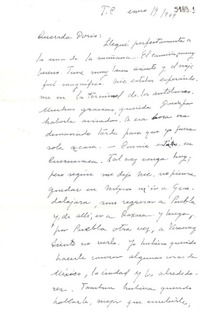 T. C. enero 19 / 949
Querida Doris:
Llegué perfectamente a
la una de la mañana. El camino muy
bueno. Tuve muy buen asiento y el viaje
fué magnífico. Me estaban esperando
me en la terminal de los autobuses.
Muchas gracias querida Doris por
haberla avisado. A esa hora era
demasiado tarde para que yo fuera
sola a casa. — Ponnie está en
Cuernavaca. Tal vez venga hoy;
pero según me dijo Inés, no piensa
quedar en México ni ir a Gua-
dalajara, sino regresar a Puebla
y de allí, ir a Oaxaca y luego,
por Puebla otra vez, a Veracruz
Siento no verlo. Yo hubiera querido
hacerle conocer algunas cosas de
México, la ciudad y los alrededo-
res. También hubiera querido
hablarle, mejor que escribirle,